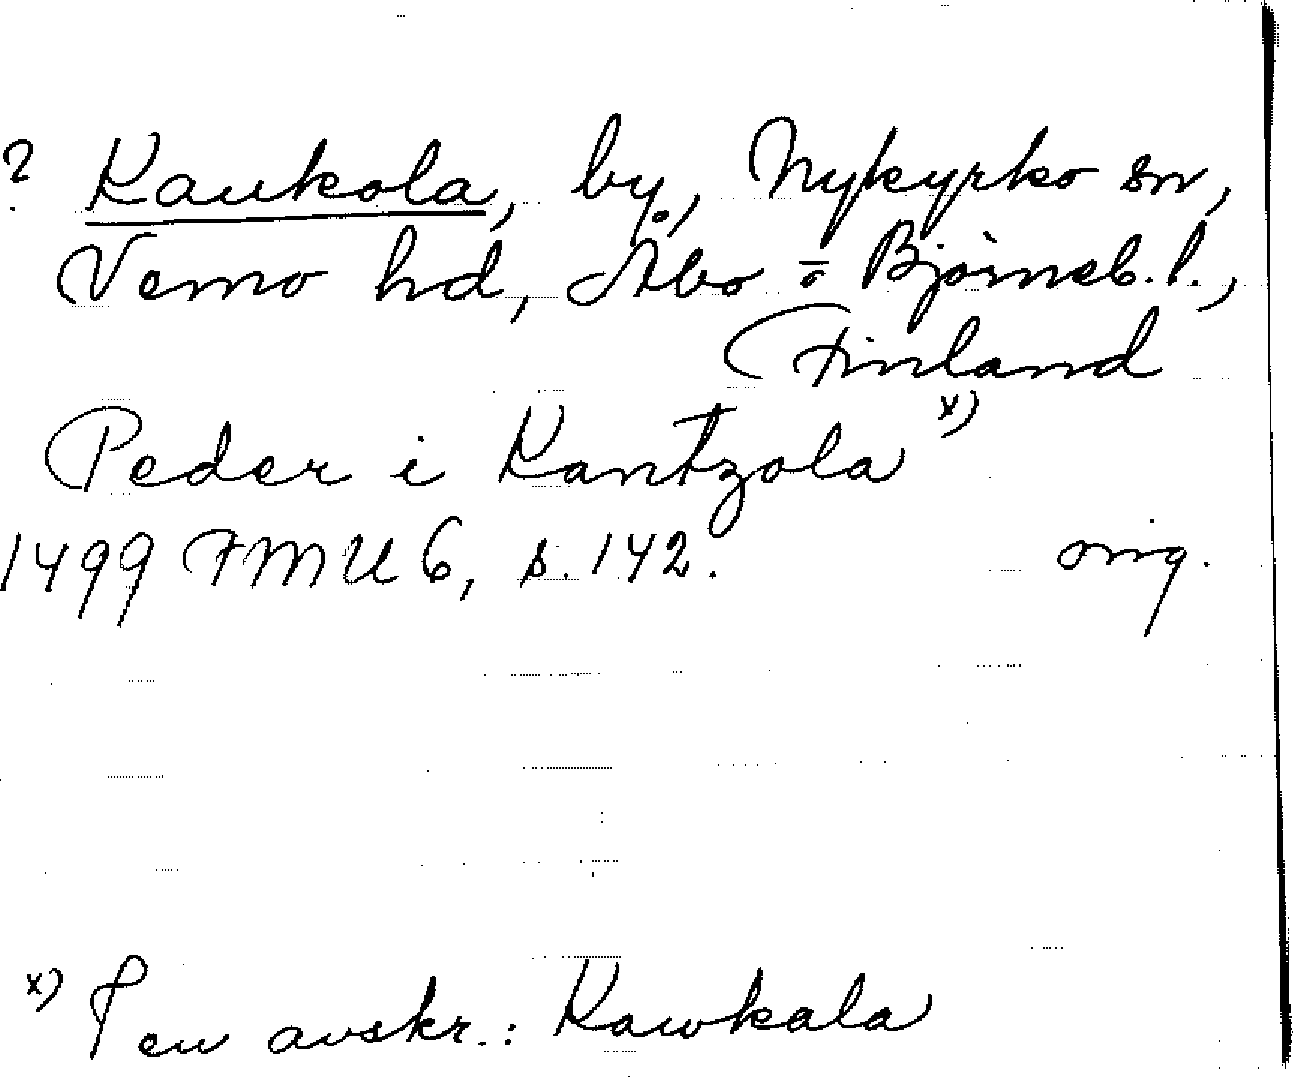 ? Kaukola, by, Nykyrko sn,
Vemo hd, Åbo o Björneb. l.,
Finland
Peder i Kantzola x)
1499 FMU 6, s. 142. orig.
x) I en avskr.: Kawkala